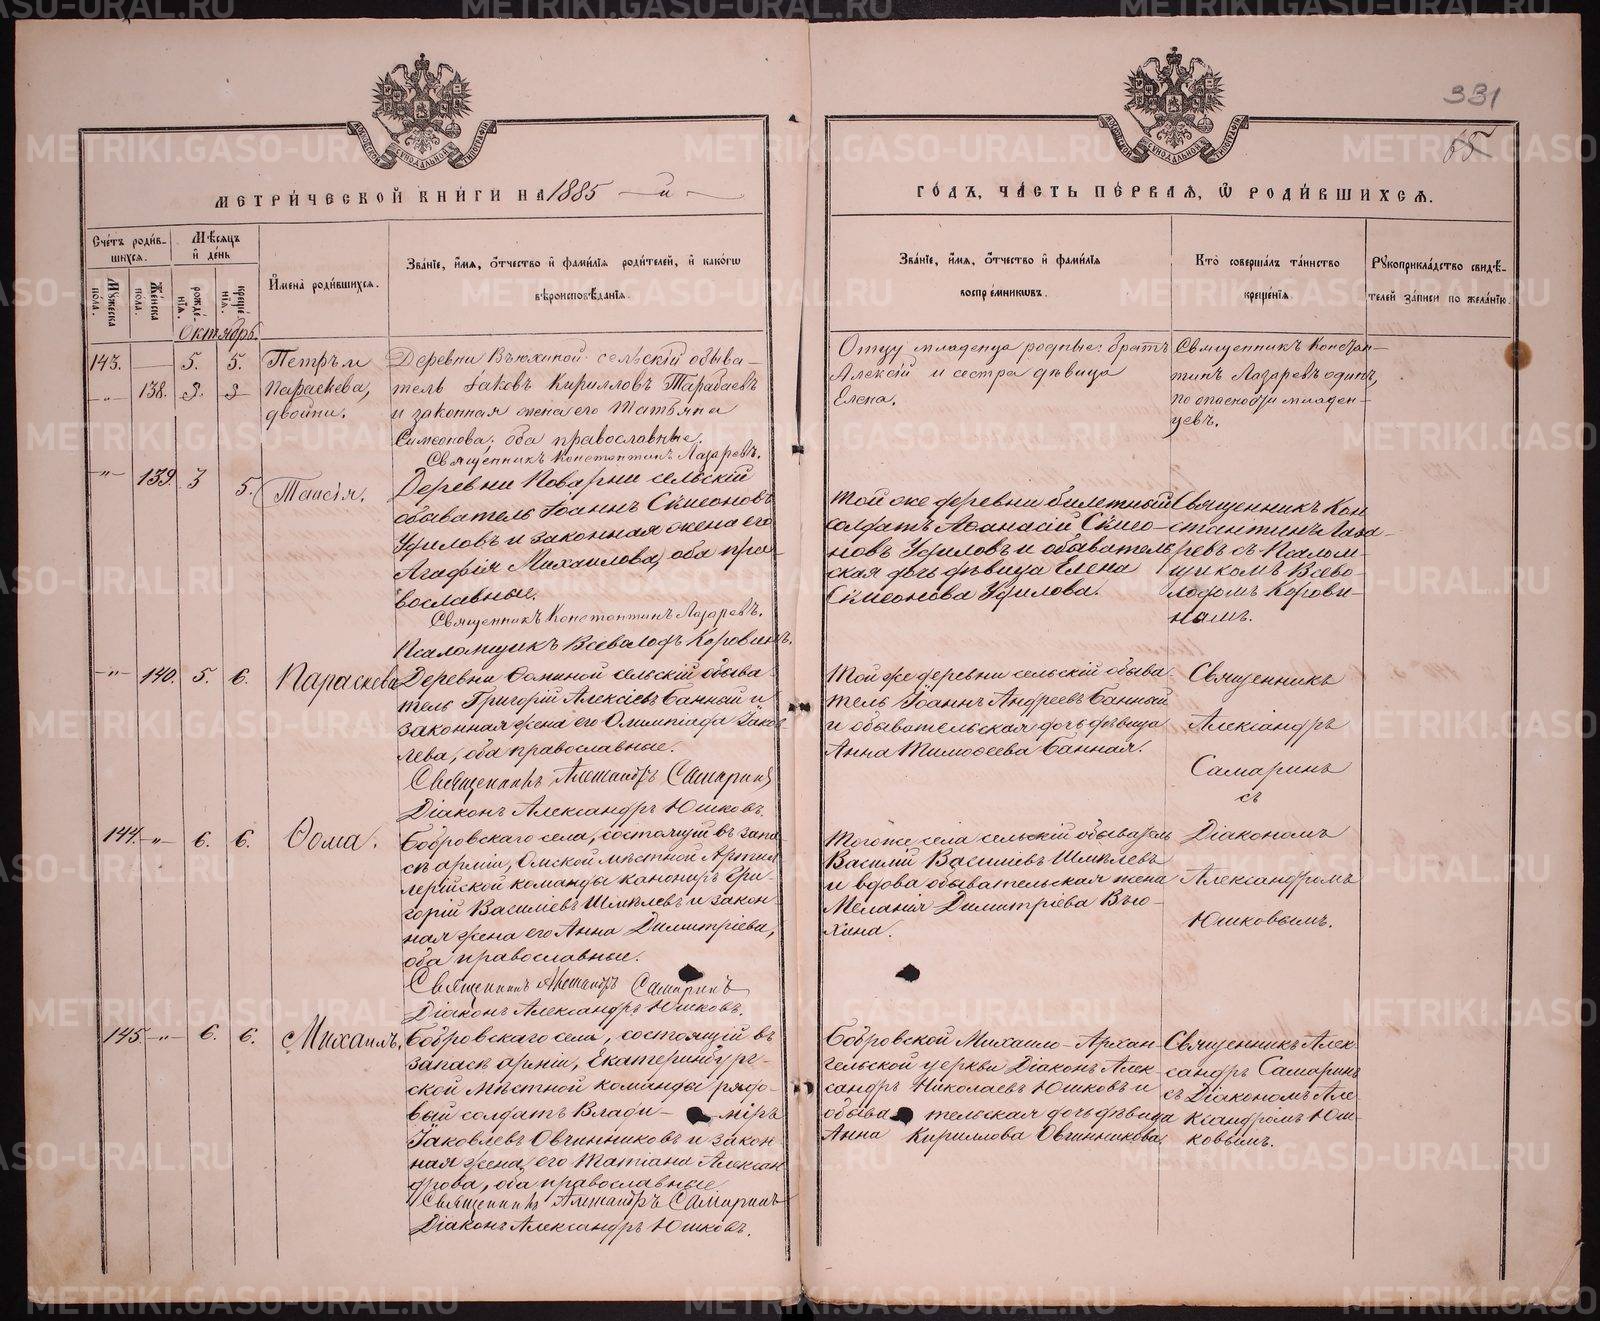 331
65
МЕТРИ́ЧЕСКОЙ КНИ́ГИ НА 1885 — й —
ГО́ДЪ, ЧА́СТЬ ПЕ́РВАЯ, Ѡ РОДИ́ВШИХСѦ.
Сче́тъ роди́в-
шихсѧ.
Му́жеска пола.
Же́нска пола.
Мѣ́сѧцъ
и҆ де́нь
рожде́-
нїѧ.
креще́-
нїѧ.
Октябрь.
И҆мена̀ роди́вшихсѧ.
Зва́нїе, и҆́мѧ, ѻ҆́тчество и҆ фами́лїѧ роди́телей, и҆ како́гѡ
вѣроисповѣ́данїѧ.
Зва́нїе, и҆́мѧ, ѻ҆́тчество и҆ фами́лїѧ
воспрїе́мникѡвъ.
Кто̀ соверша́лъ та́инство
креще́нїѧ.
Рꙋкоприкла́дство свидѣ́-
телей за́писи по жела́нїю.
143. — 5. 5. Петръ и
-„- 138. 3. 3 Параскева,
двойни.
Деревни Вьюхиной сельскій обыва-
тель Іаковъ Кирилловъ Тарабаевъ
и законная жена его Татьяна
Симеонова, оба православные.
Священникъ Константинъ Лазаревъ.
Отцу младенца родные: братъ
Алексій и сестра дѣвица
Елена.
Священникъ Констан-
тинъ Лазаревъ одинъ,
по опасности младен-
цевъ.
-„- 139. 3 5. Таисія.
Деревни Поварни сельскій
обыватель Іоаннъ Сѵмеоновъ
Уфиловъ и законная жена его
Агафія Михаилова, оба пра-
вославные.
Священникъ Константинъ Лазаревъ.
Псаломщикъ Всеволодъ Коровинъ.
Той же деревни билетный
солдатъ Аѳанасій Сѵмео-
новъ Уфиловъ и обыватель
ская дочь дѣвица Елена
Сѵмеонова Уфилова.
Священникъ Кон
стантинъ Лаза-
ревъ съ Псалом-
щикомъ Всево-
лодомъ Корови-
нымъ.
-„- 140. 5. 6. Параскева
Деревни Ѳоминой сельскій обыва-
тель Григорій Алексіевъ Банный и
законная жена его Олимпіада Іаков
лева, оба православные.
Священникъ Александръ Самаринъ
Діаконъ Александръ Юшковъ.
Той же деревни сельскій обыва
тель Іоаннъ Андреевъ Банный
и обывательская дочь дѣвица
Анна Тимоѳеева Банная.
Священникъ
Александръ
Самаринъ
съ
144. -„- 6. 6. Ѳома.
Бобровскаго села, состоящій въ запа
сѣ арміи, Омской мѣстной Артил
лерійской команды канониръ Гри-
горій Василіевъ Шмелевъ и закон-
ная жена его Анна Димитріева,
оба православные.
Священникъ Александръ Самаринъ
Діаконъ Александръ Юшковъ.
Того же села сельскій обыватель
Василій Василіевъ Шмелевъ
и вдова обывательская жена
Меланія Димитріева Вью-
хина.
Діакономъ
Александромъ
Юшковымъ.
145. -„- 6. 6. Михаилъ.
Бобровскаго села, состоящій въ
запасѣ арміи, Екатеринбург-
ской мѣстной команды рядо-
вый солдатъ Влади- міръ
Іаковлевъ Овчинниковъ и закон-
ная жена его Татіана Алексан
дрова, оба православные
Священникъ Александръ Самаринъ
Діаконъ Александръ Юшковъ.
Бобровской Михаило-Архан
гельской церкви Діаконъ Алек-
сандръ Николаевъ Юшковъ и
обыва тельская дочь дѣвица
Анна Кириллова Овчинникова.
Священникъ Алек
сандръ Самаринъ
съ Діакономъ Але-
ксандромъ Юш
ковымъ.
METRIKI.GASO-URAL.RU